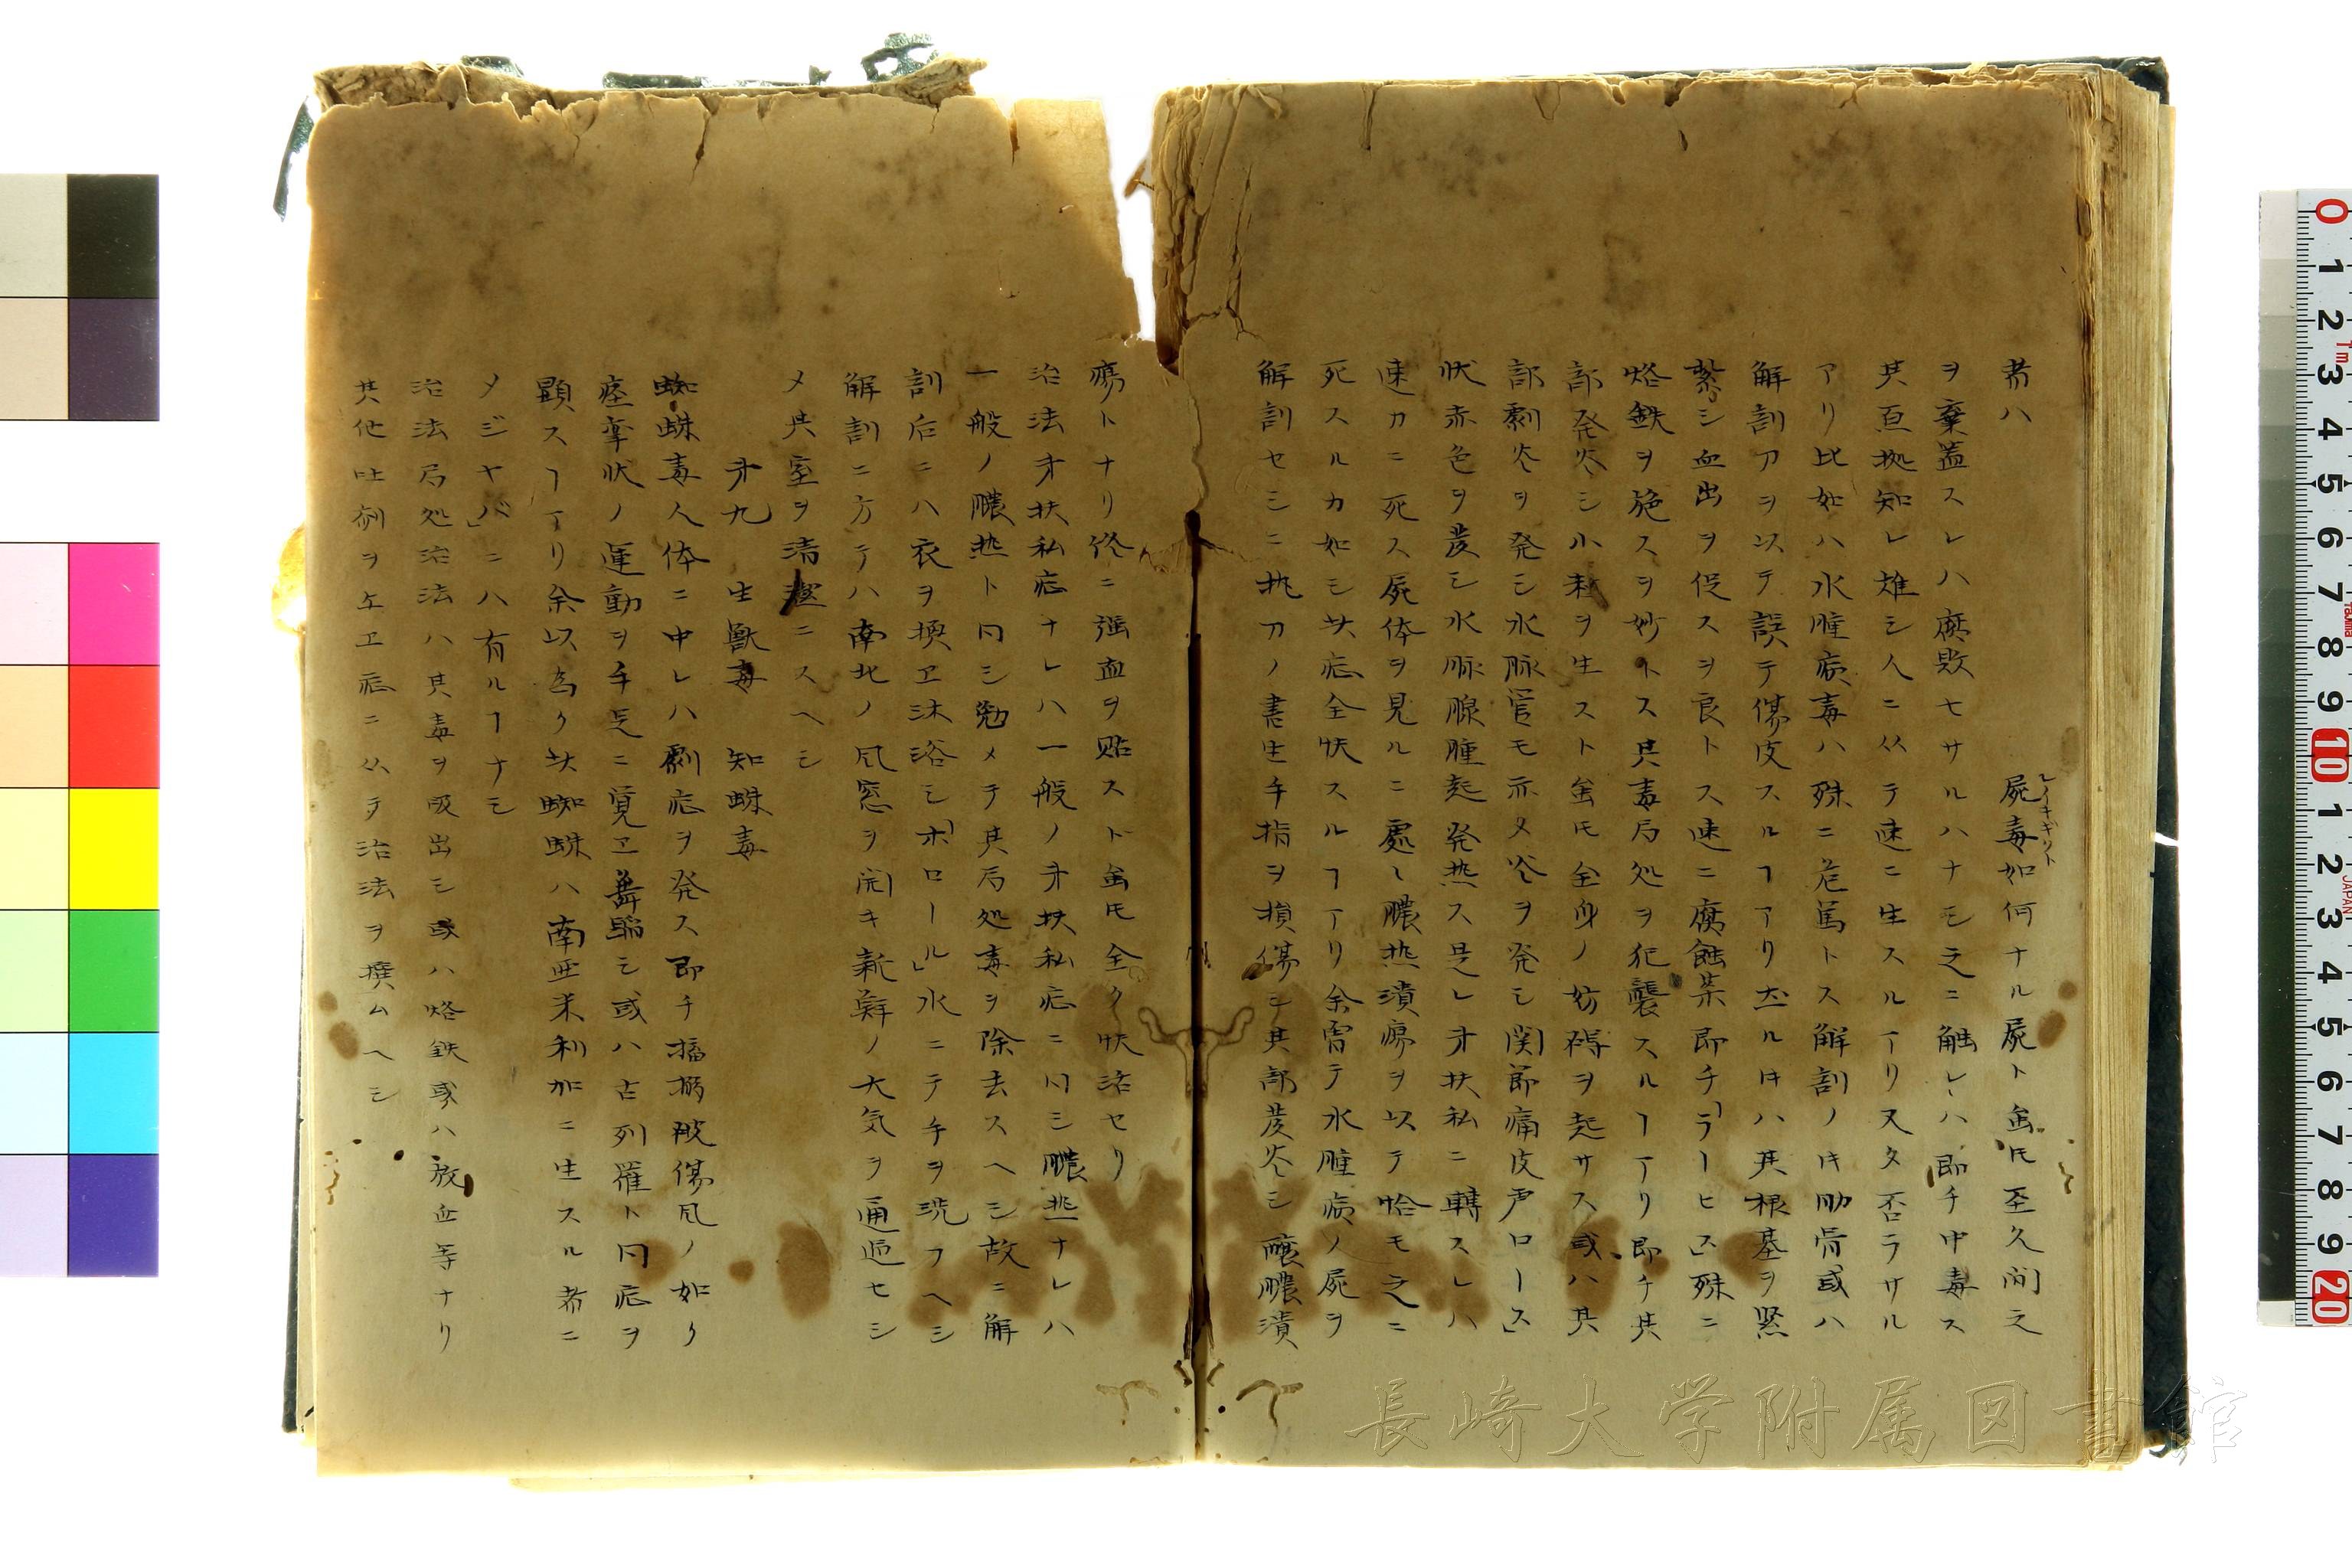 者ハ
屍毒如何ナル屍ト雖𪜈至久間之
レイキギリト
ヲ棄蓋スレハ腐敗セサルハナシ之ニ触レハ即チ中毒ス
其亘拠知レ雄シ人ニ从テ速ニ生スルアリ又タ否ラサル
アリ比如ハ水腫病毒ハ殊ニ危篤トス解剖ノ時肋骨或ハ
解剖刀ヲ以テ誤テ傷皮スルヿアリ左ル時ハ其根基ヲ緊
紮シ血出ヲ促スヲ良トス速ニ腐蝕薬即チ「ラーヒス」殊ニ
烙鉄ヲ施スヲ妙トス其毒局処ヲ犯襲スルヿアリ即チ其
部発炎シ小瘡ヲ生スト雖𪜈全身ノ妨碍ヲ起サス或ハ其
部劇炎ヲ発シ水脉管モ亦タ炎ヲ発シ関節痛皮声ロース」
状赤色ヲ発シ水脉腺腫起発熱ス是レ才扶私ニ轉スレハ
速カニ死ス屍体ヲ見ルニ處々膿熱潰瘍ヲ以テ恰モ之ニ
死スルカ如シ此症全快スルヿアリ余嘗テ水腫病ノ屍ヲ
解剖セシニ執刀ノ書生手指ヲ損傷シ其部発炎シ醸膿潰
瘍トナリ終ニ强血ヲ貼スト雖𪜈全ク快活セリ
治法才扶私症ナレハ一般ノ才扶私症ニ同シ膿熱ナレハ
一般ノ膿熱ト同シ勉メテ其局処毒ヲ除去スヘシ故ニ解
剖后ニハ衣ヲ換ヱ沐浴シ「ホロール」水ニテ手ヲ洗フヘシ
解剖ニ方テハ南北ノ風窓ヲ開キ新鮮ノ大気ヲ通過セシ
メ其室ヲ清潔ニスヘシ
才九　生獣毒　知蛛毒
蜘蛛毒人体ニ中レハ劇症ヲ発ス即チ搐搦破傷風ノ如ク
痙攣状ノ運動ヲ手足ニ覚ヱ舞踏シ或ハ古列羅ト同症ヲ
顕スヿアリ余以為ク此蜘蛛ハ南亜米利加ニ生スル者ニ
〆ジヤバ」ニハ有ルヿナシ
治法局処治法ハ其毒ヲ吸出シ或ハ烙鉄或ハ放血等ナリ
其他吐剤ヲ与ヱ症ニ从テ治法ヲ撰ムヘシ
長崎大学附属図書館